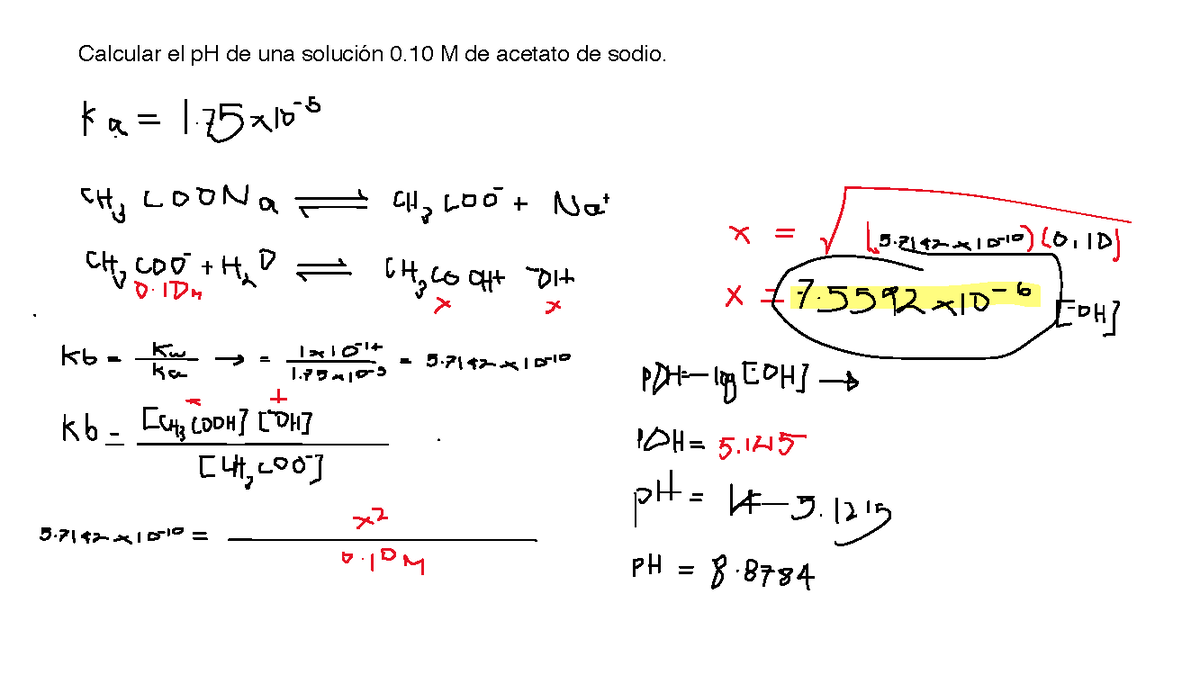 Calcular el pH de una solución 0.10 M de acetato de sodio.
Ka = 1.75 x10⁻⁵
CH₃COONa ⇌ CH₃COO⁻ + Na⁺
CH₃COO⁻ + H₂O ⇌ CH₃COOH + ⁻OH
0.10M x x
Kb = Kw/Ka → = 1x10⁻¹⁴/1.75x10⁻⁵ = 5.7142x10⁻¹⁰
Kb = [CH₃COOH] [⁻OH] / [CH₃COO⁻]
5.7142x10⁻¹⁰ = x² / 0.10M
x = √(5.7142x10⁻¹⁰)(0.10)
x = 7.5592x10⁻⁶ [⁻OH]
pOH=-log [⁻OH] →
pOH = 5.1215
pH = 14-5.1215
pH = 8.8784